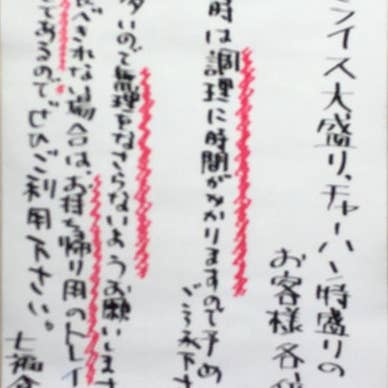 ライス大盛り、チャーハン特盛りの
お客様各
時は調理に時間がかりますので予め
ご了承下さ
多いので無理をなさらないようお願いします
食べきれない場合は、お持ち帰り用のトレイ
てあるのでぜひご利用下さい。
七福